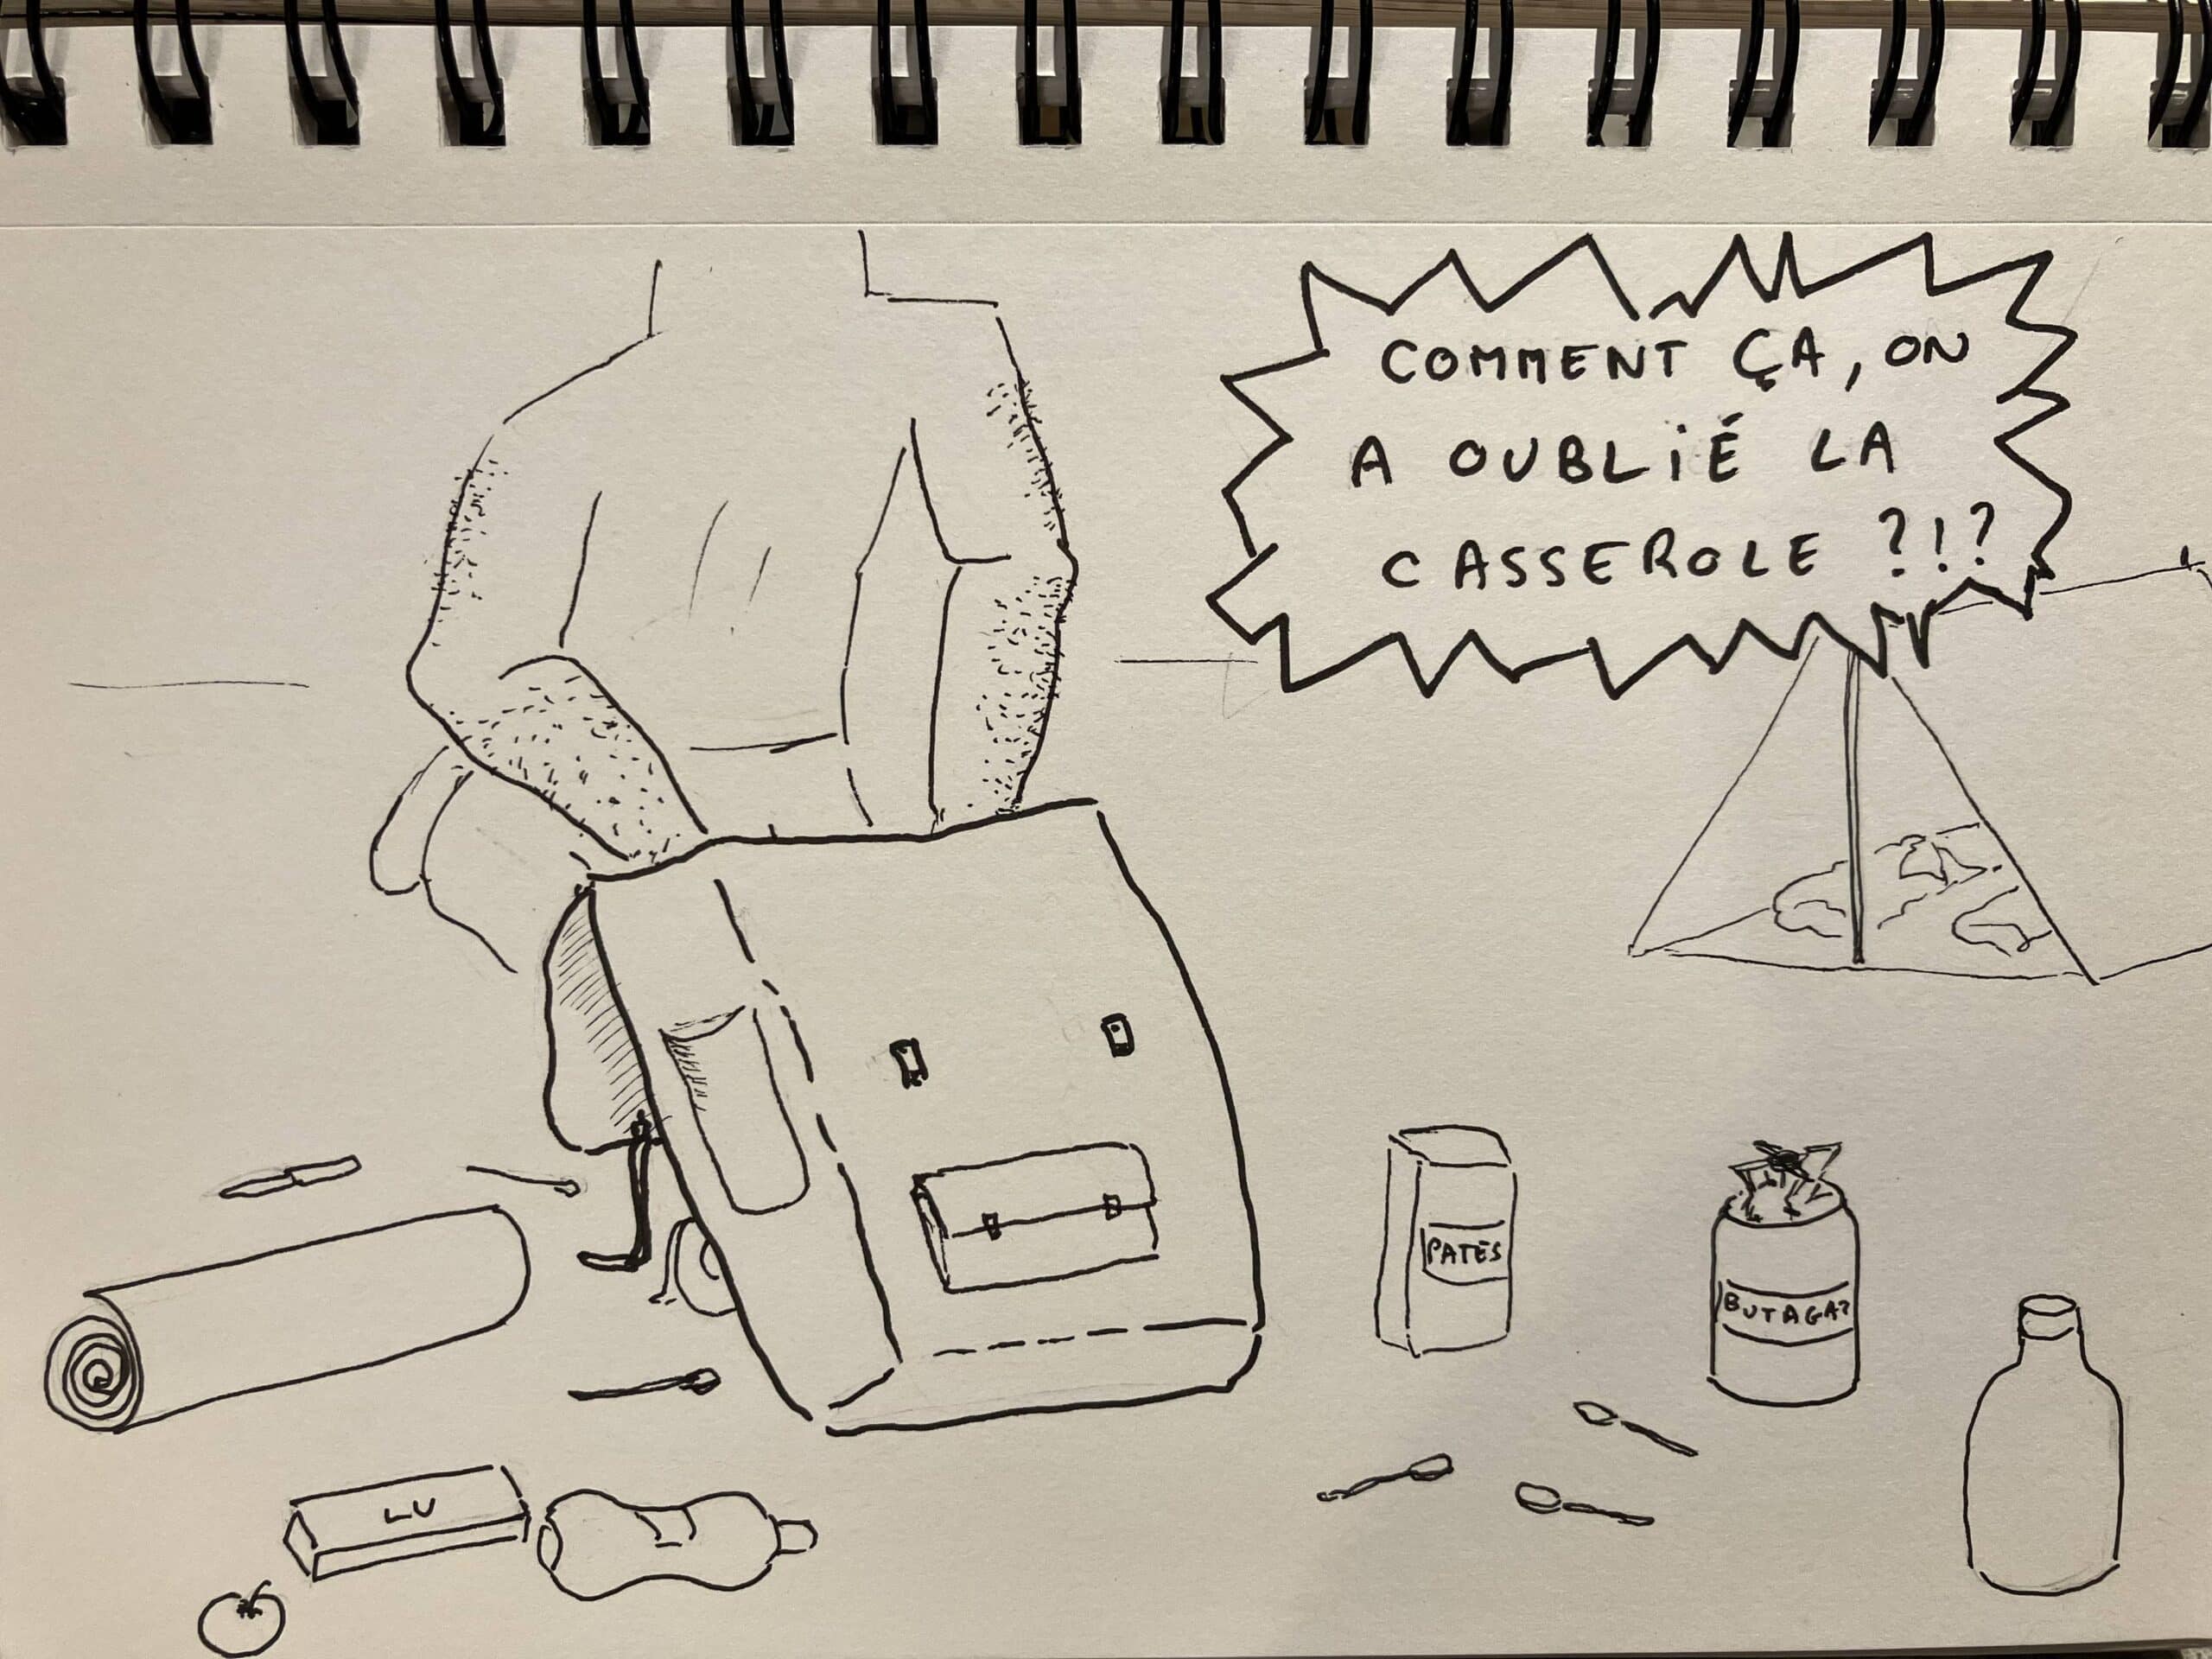 COMMENT ÇA, ON
A OUBLIÉ LA
CASSEROLE ?!?
PATES
BUTAGAZ
LU